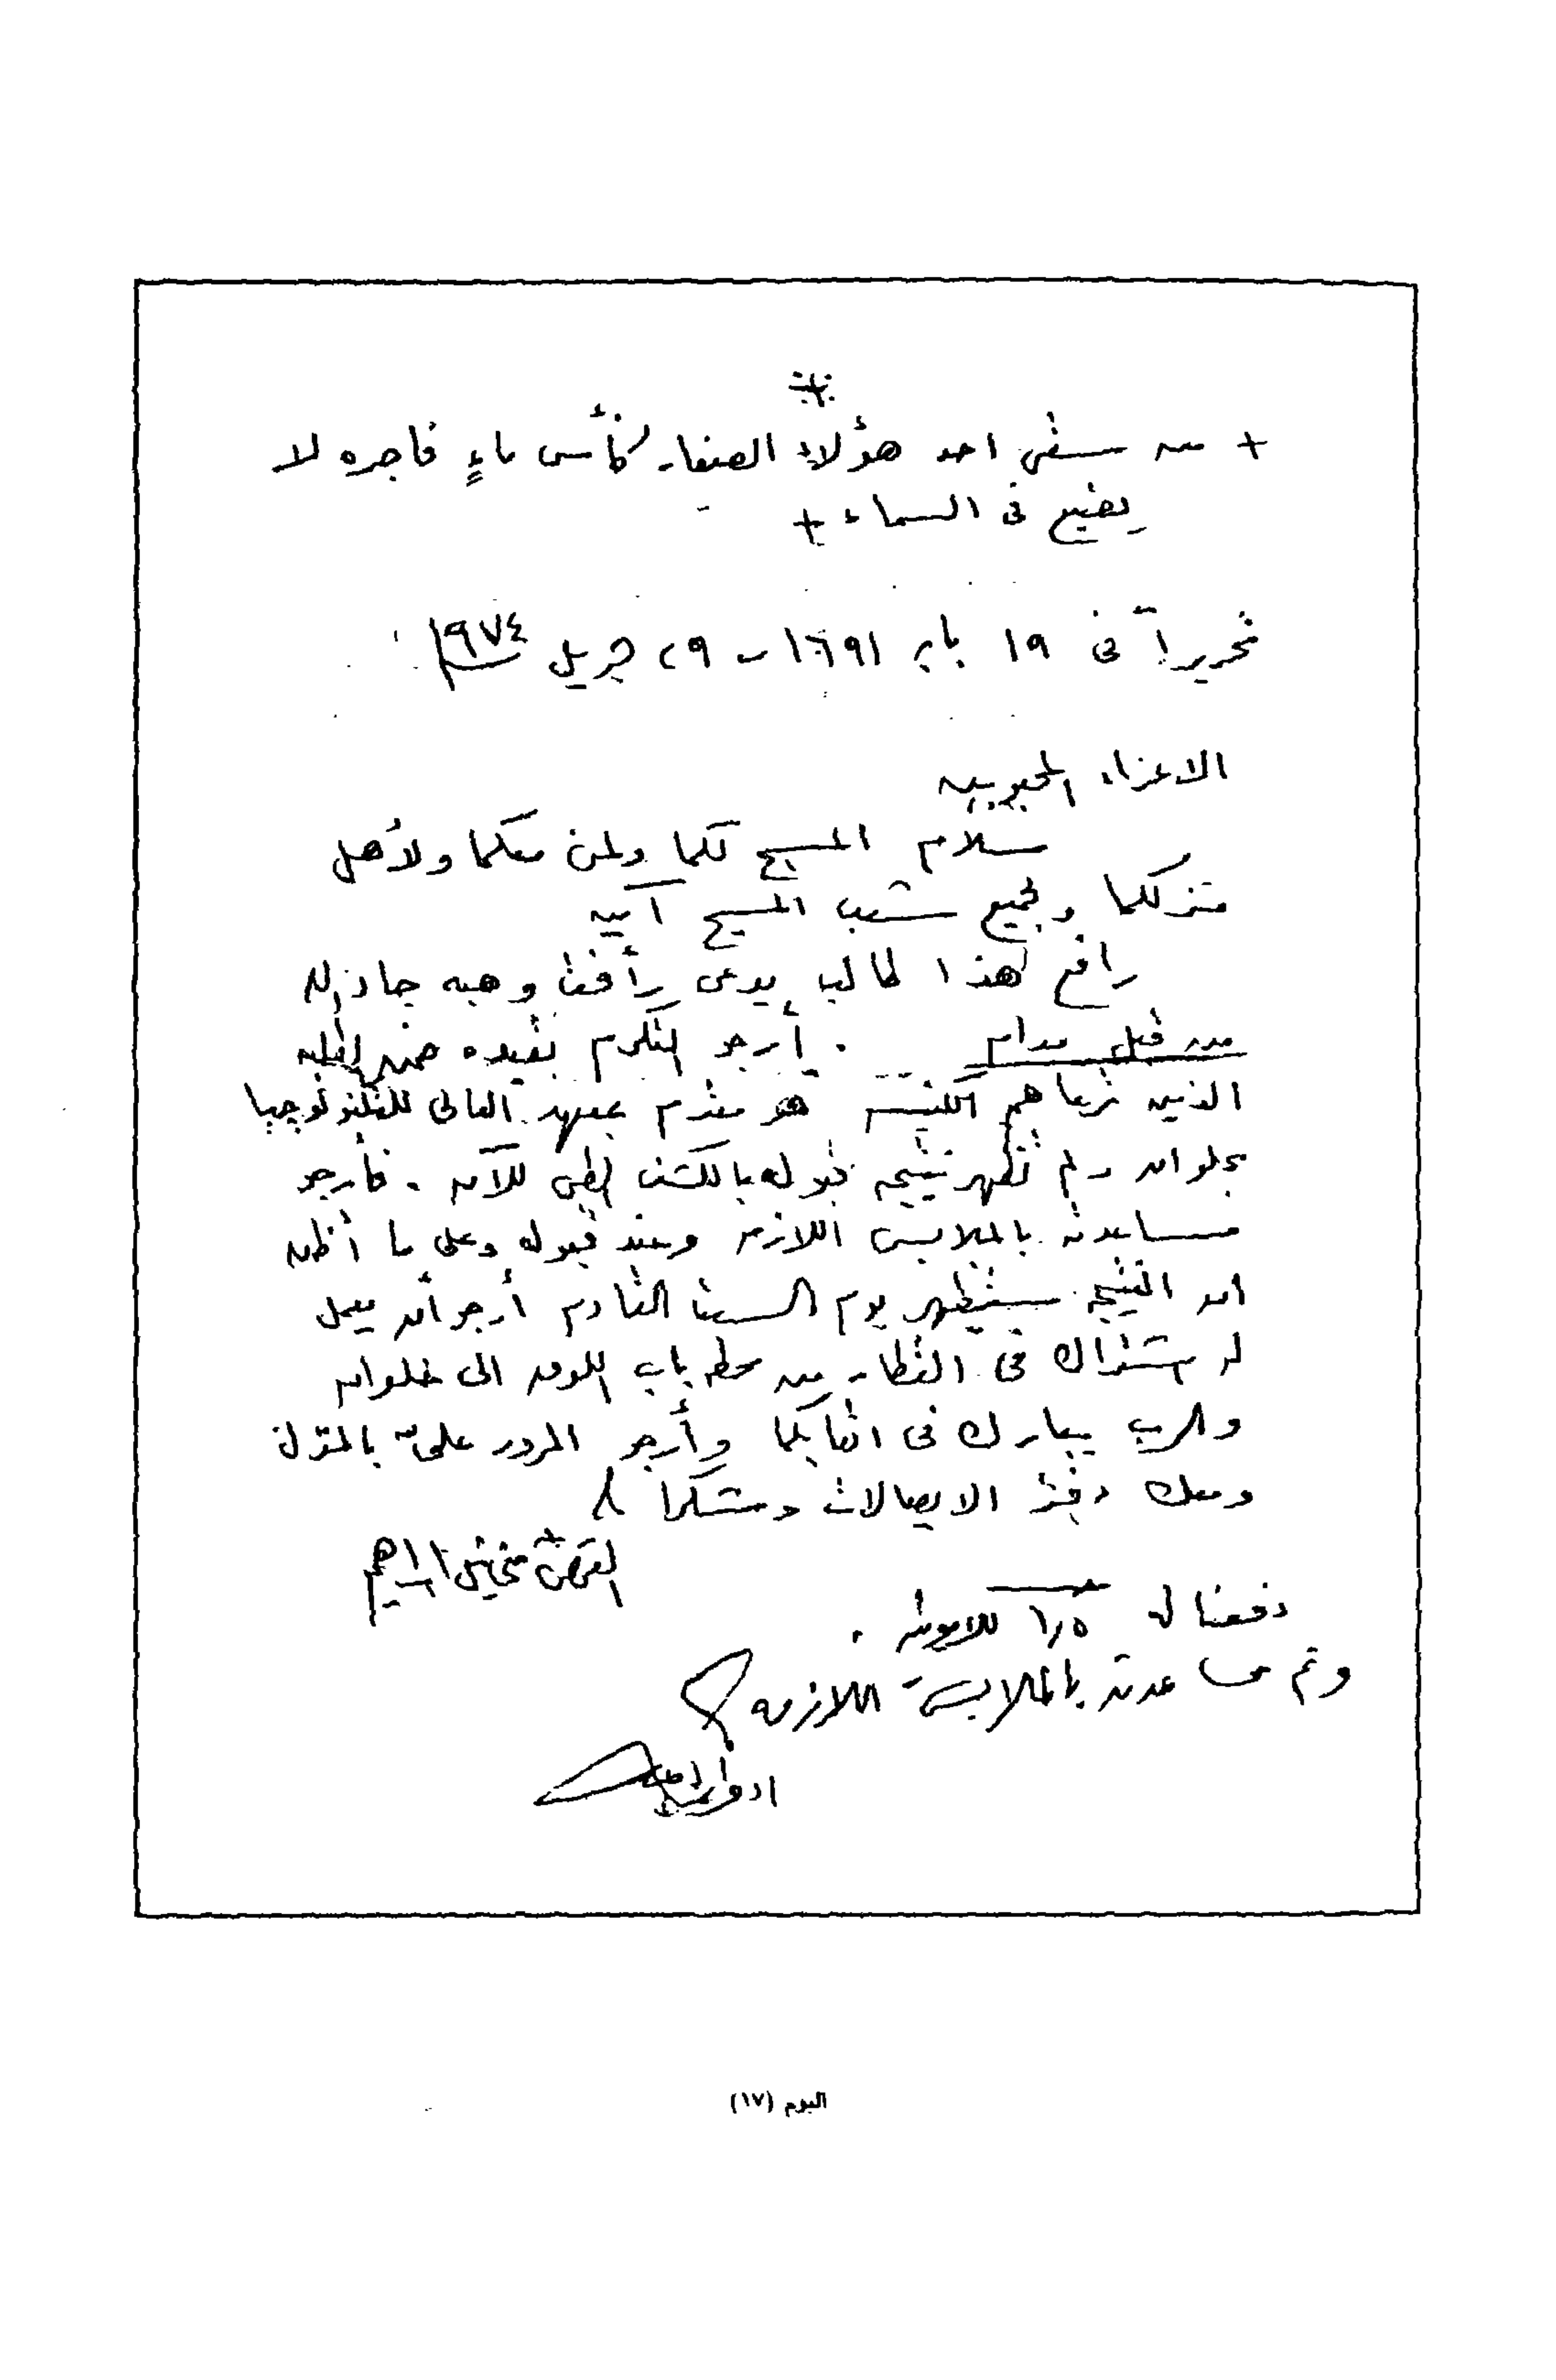 + من سقى احد هؤلاء الصغار كأس ماءٍ فأجره لا
يضيع فى السماء +
تحريراً فى ١٩ بابه ١٦٩١ - ٢٩ ١٩٧٤
الاعزاء المحبوبين
سلام المسيح لكما ولمن معكما ولأهل
منزلكما ولجميع شعب المسيح آمين
رافع هذا طالب يدعى رأفت وهبه جاد الله
من قبل مدام . أرجو التكرم بقيده ضمن الطلبه
الذين ترعاهم الكنيسة هو مقدم بمعهد العالى للتكنولوجيا
بحلوان ولم تظهر نتيجة قبوله بالكشف الطبى للآن . فأرجو
مساعدته بالملابس اللازمة وعند قبوله وعلى ما أظن
ان النتيجة ستظهر يوم السبت القادم أرجو أن يعمل
له اشتراك فى القطار من محطة باب اللوق الى حلوان
والرب يبارك فى اتعابكما وأرجو المرور علىّ بالمنزل
ومعك دفتر الايصالات وشكراً
القمص ميخائيل ابراهيم
دفعنا له ١٫٥
وتم مساعدته بالملابس اللازمه
البوم (١٧)